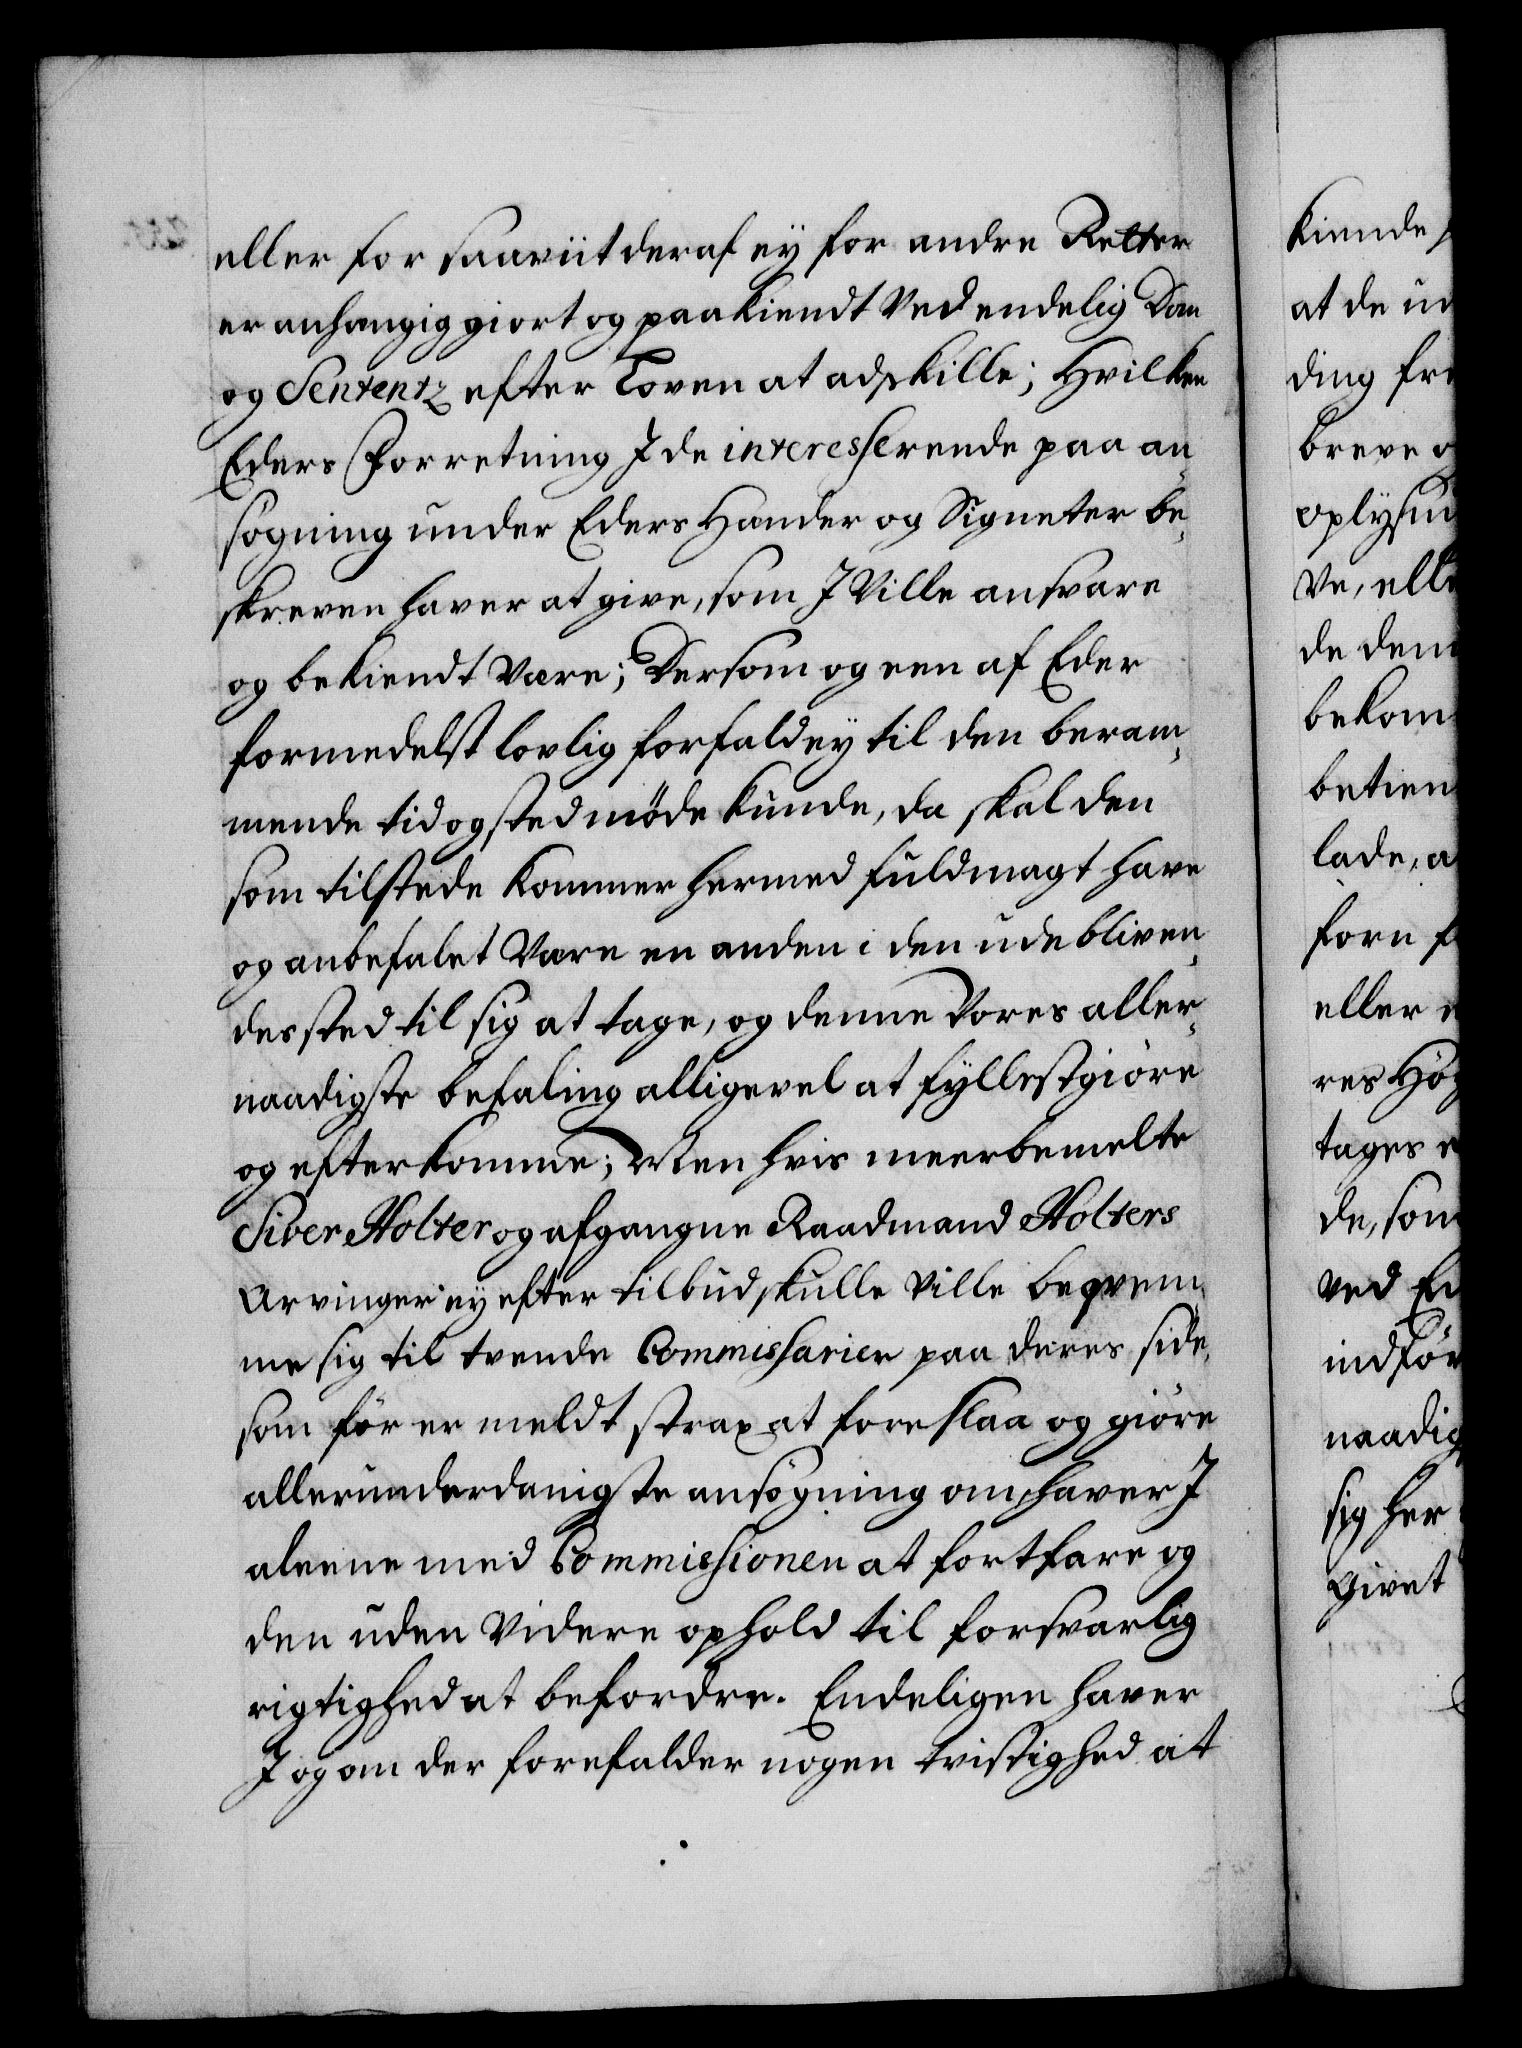 eller for saaviit deraf ey for andre Retter
er anhængig giort og paakiendt ved endelig Dom
og Sententz efter Loven at adskille; Hvilken
Eders Forretning I de interesserende paa an-
søgning under Eders Hænder og Signeter be-
skreven haver at give, som I ville ansvare
og bekiendt være; Dersom og een af Eder
formedelst lovlig forfald ey til den beram-
mende tid og sted møde kunde, da skal den
som tilstede kommer hermed fuldmagt have
og anbefalet være en anden i den udebliven-
des sted til sig at tage, og denne Vores aller-
naadigste befaling alligevel at fyllestgiøre
og efterkomme; Men hvis meerbemelte
Siver Holter og afgangne Raadmand Holters
Arvinger ey efter tilbud skulle ville beqvem-
me sig til tvende Commissarier paa deres side,
som før er meldt strax at foreslaa og giøre
allerunderdanigste ansøgning om, haver I
aleene med Commissionen at fortfare og
den uden videre ophold til forsvarlig
rigtighed at befordre. Endeligen haver
I og om der forefalder nogen tvistighed at
kiende
at de
ding
breve
ve,
de
lade,
eller
res
tages
de, som
ved
naadig
sig her
Givet